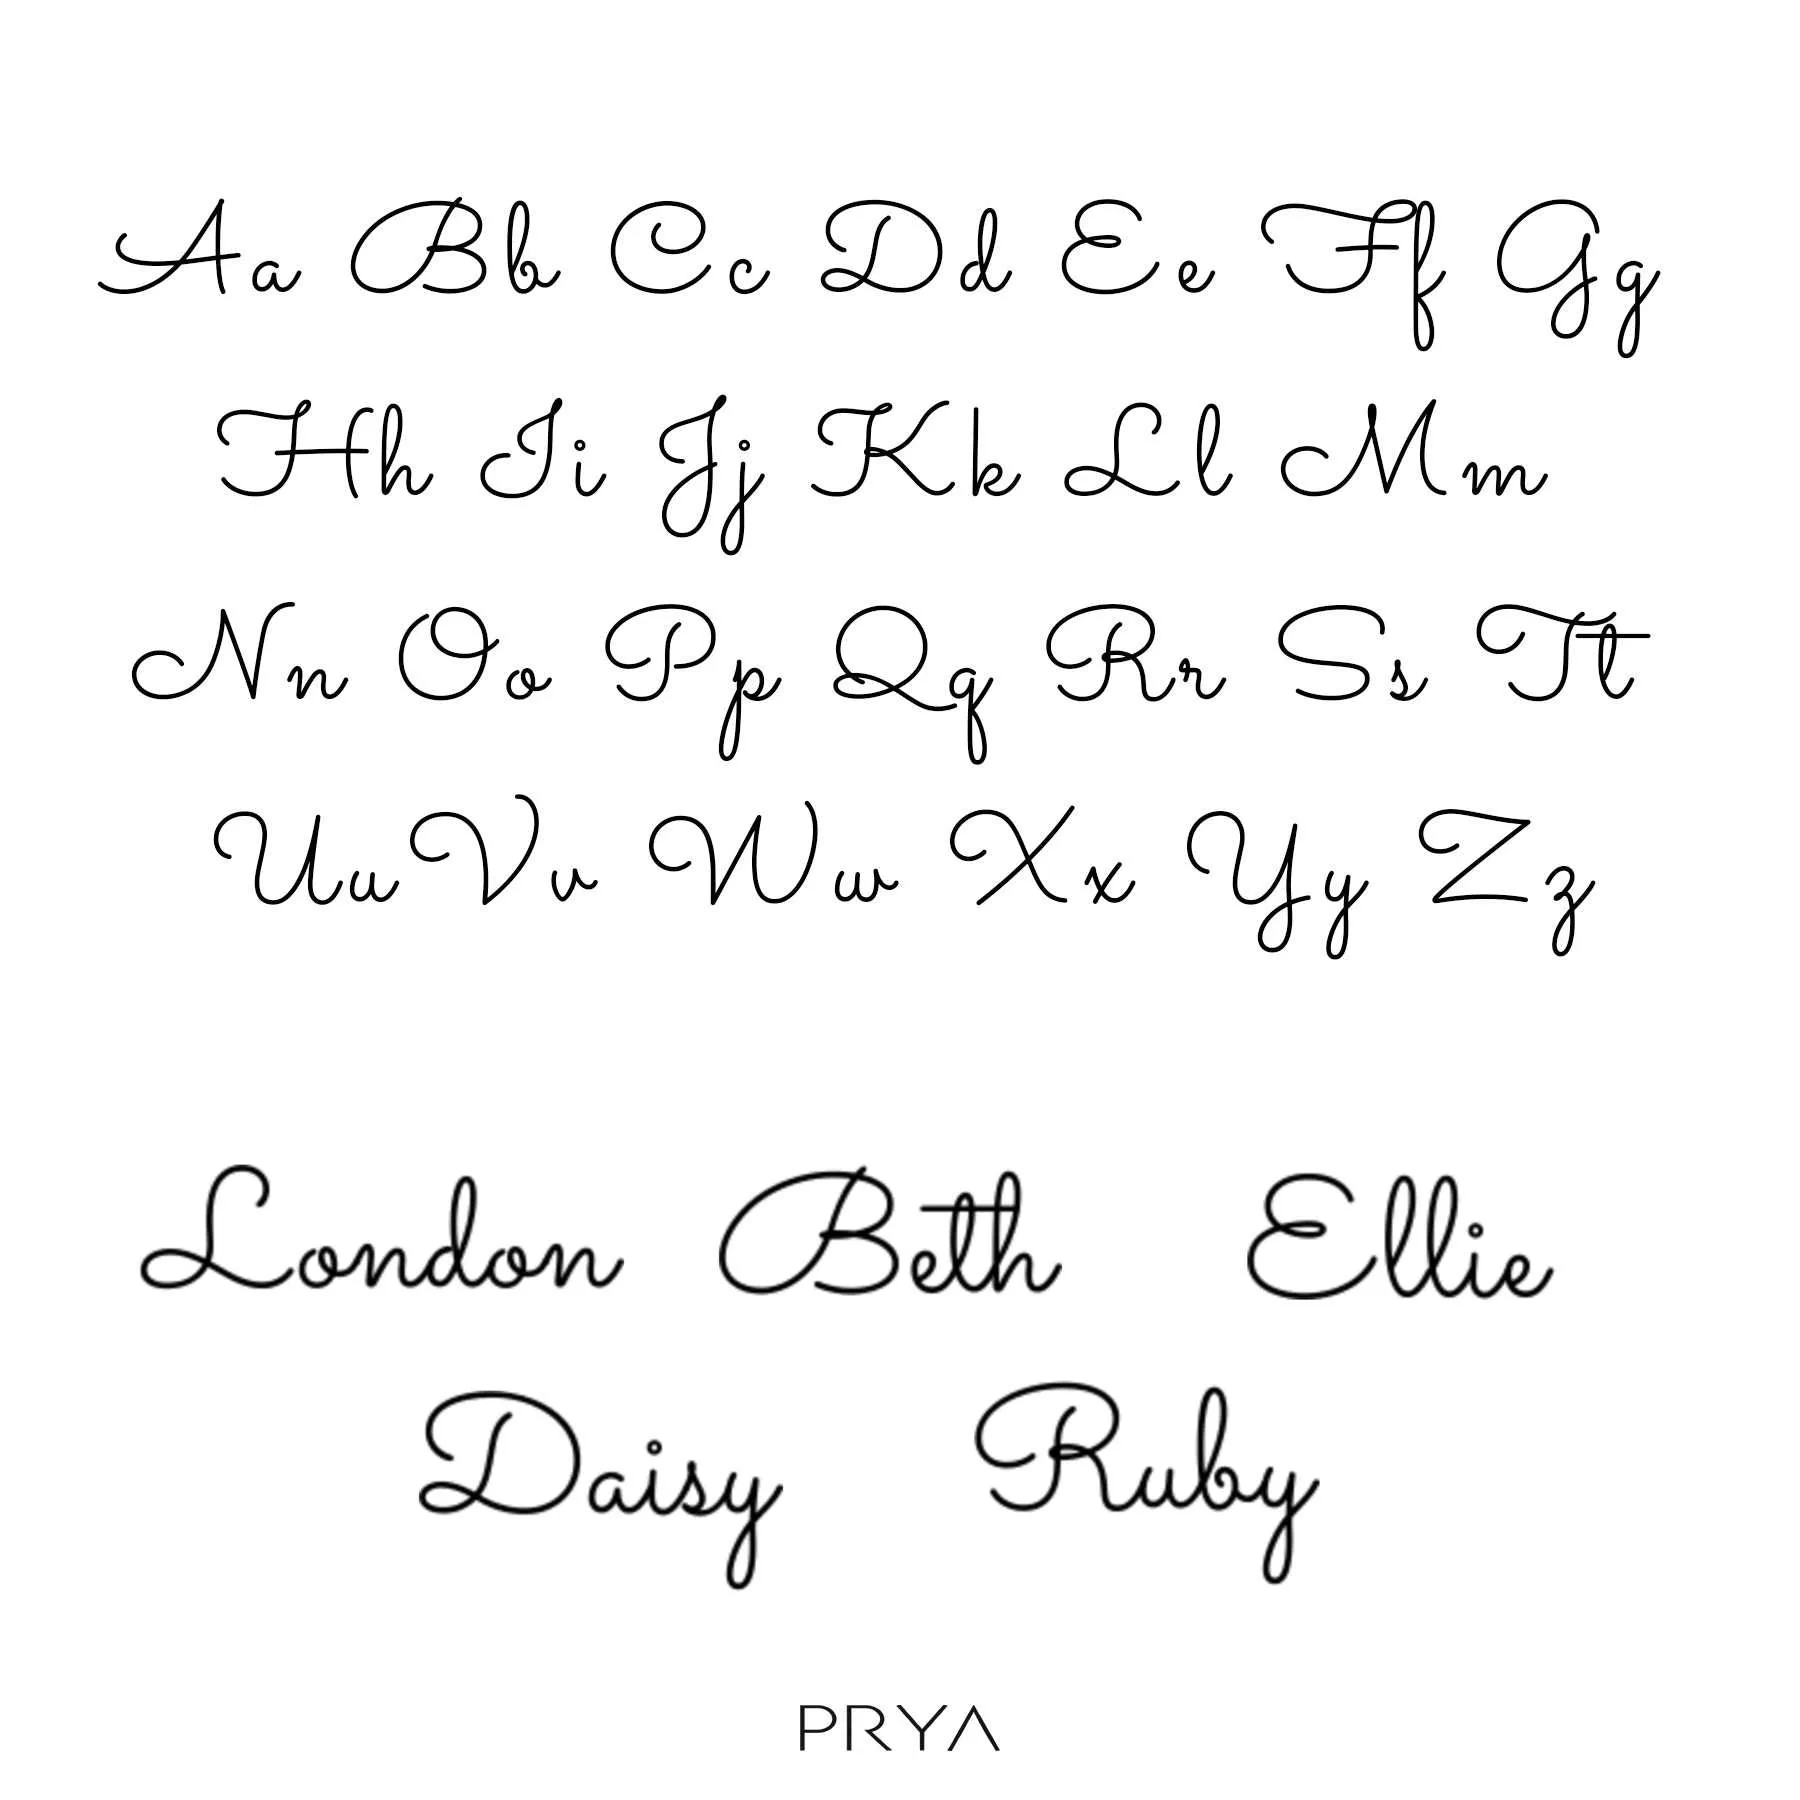 Aa Bb Cc Dd Ee Ff Gg
Hh Ii Jj Kk Ll Mm
Nn Oo Pp Qq Rr Ss Tt
Uu Vv Ww Xx Yy Zz
London Beth Ellie
Daisy Ruby
PRYA